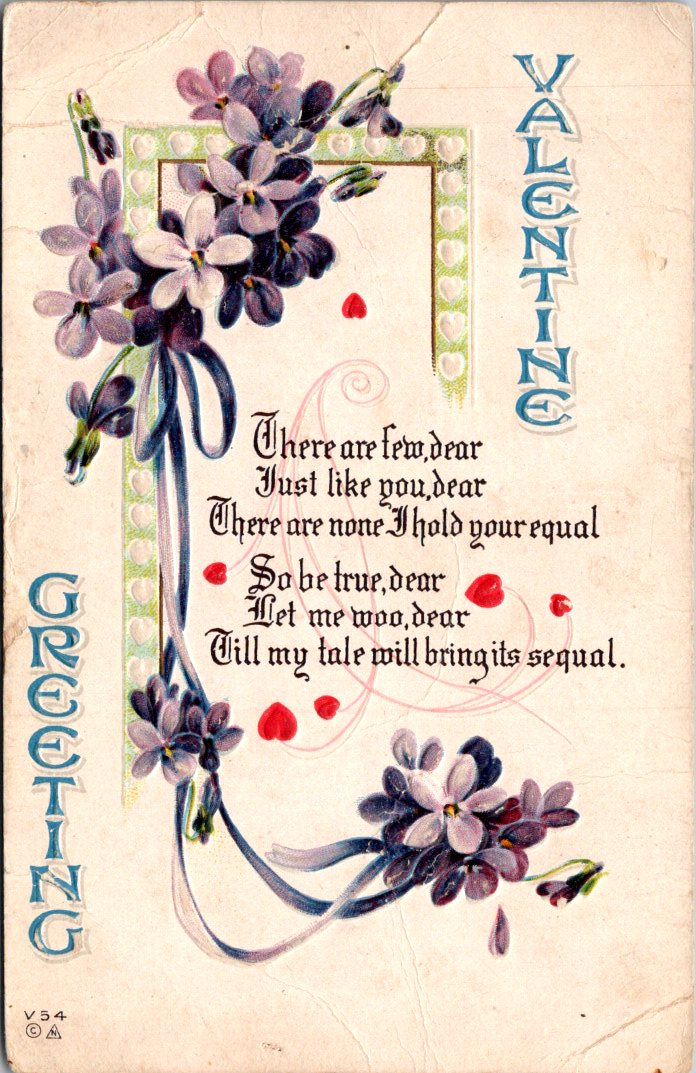 VALENTINE
There are few, dear
Just like you, dear
There are none I hold your equal
So be true, dear
Let me woo, dear
Till my tale will bring its sequal.
GREETING
V 54
© N